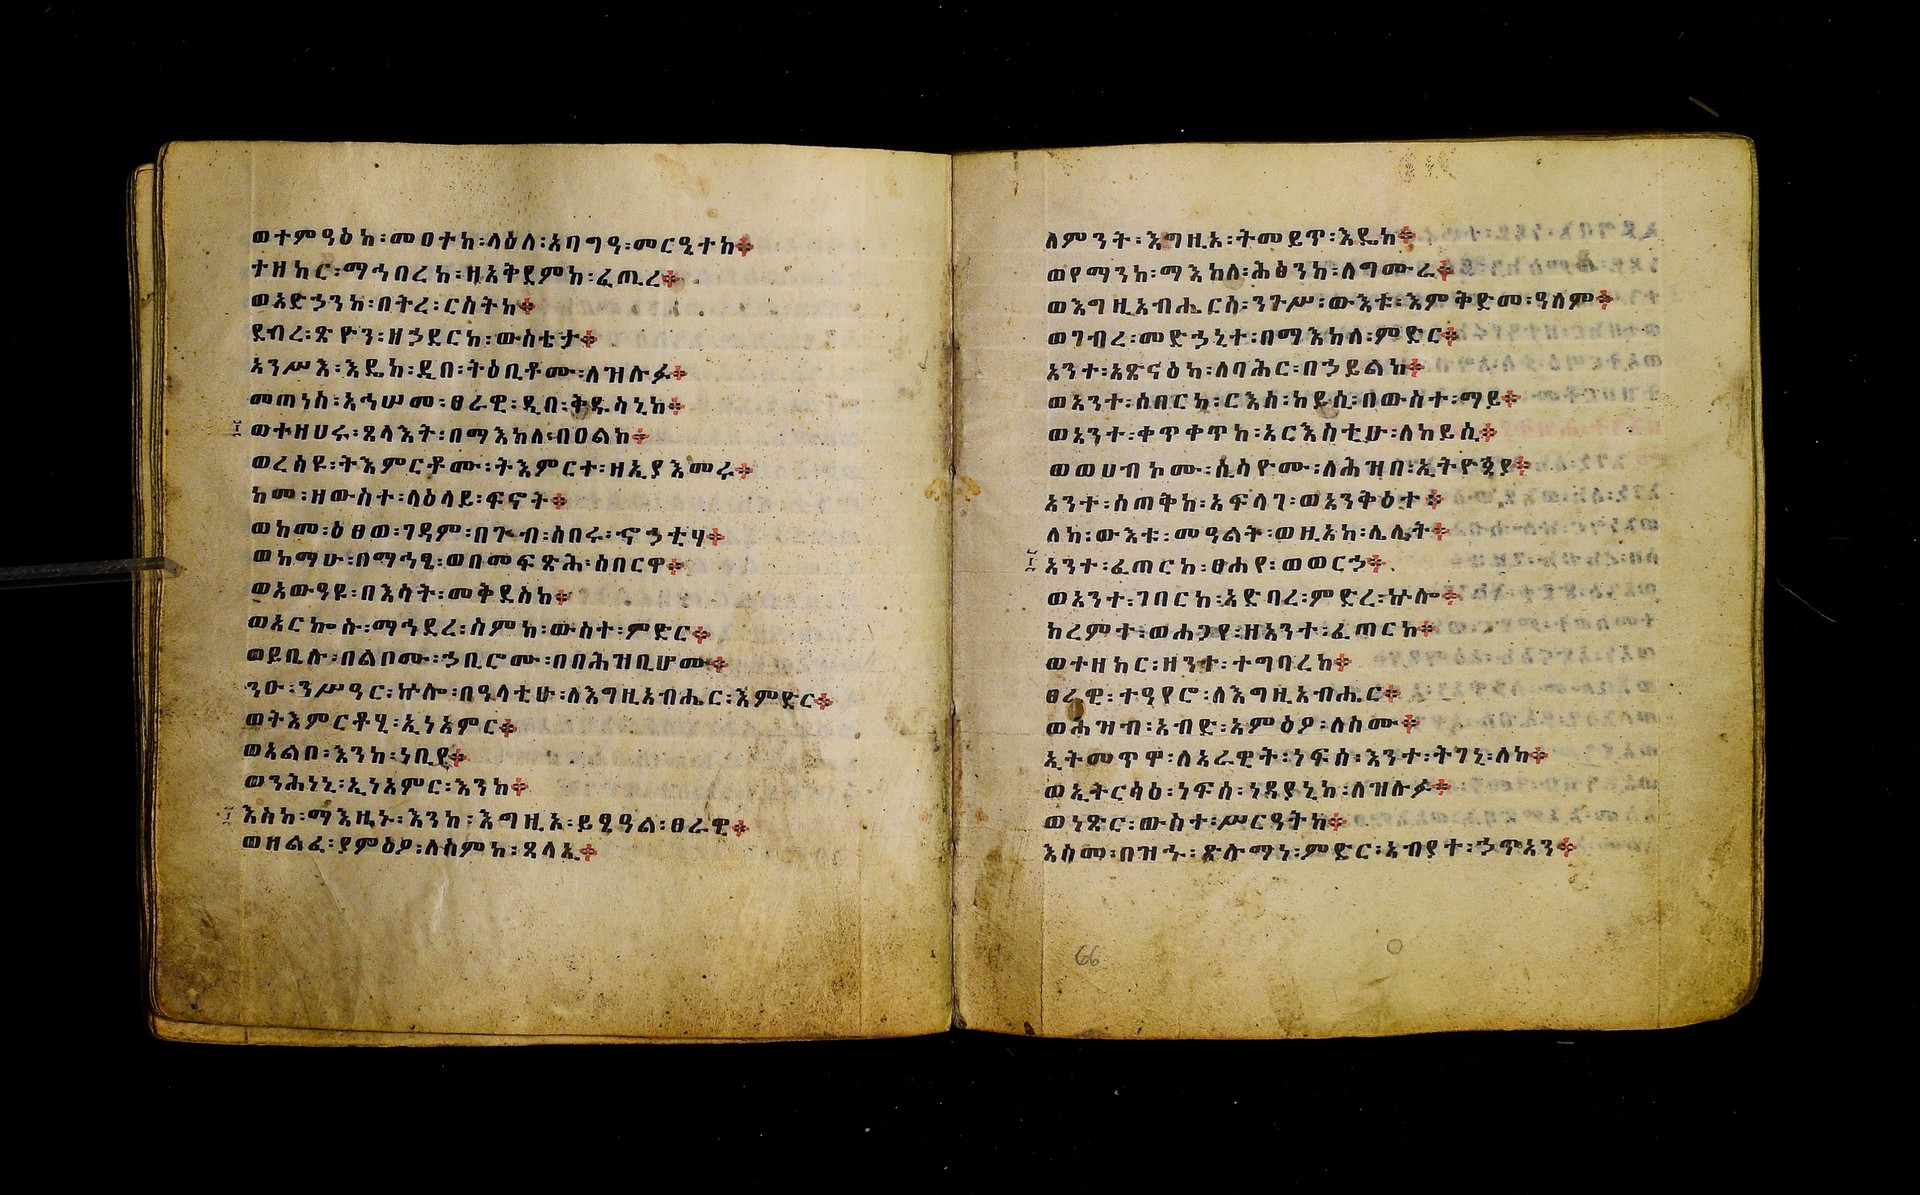 ወተምዓዕከ፡መዐተከ፡ላዕለ፡አባግዓ፡መርዔተከ፨
ተዘከር፡ማኅበረከ፡ዘአቅደምከ፡ፈጢረ፨
ወአድኃንከ፡በትረ፡ርስትከ፨
ደብረ፡ጽዮን፡ዘኃደርከ፡ውስቴታ፨
አንሥእ፡እዴከ፡ዲበ፡ትዕቢቶሙ፡ለዝሉፉ፨
መጠነስ፡አኅሠመ፡ፀራዊ፡ዲበ፡ቅዱሳኒከ፨
ወተዘሀሩ፡ጸላእት፡በማእከለ፡በዐልከ፨
ወረሰዩ፡ትእምርቶሙ፡ትእምርተ፡ዘኢያእመሩ፨
ከመ፡ዘውስተ፡ላዕላይ፡ፍኖት፨
ወከመ፡ዕፀወ፡ገዳም፡በጕብ፡ሰበሩ፡ኆኃቲሃ፨
ወከማሁ፡በማኅፄ፡ወበመፍጽሕ፡ሰበርዋ፨
ወአውዓዩ፡በእሳት፡መቅደሰከ፨
ወአርኰሱ፡ማኅደረ፡ስምከ፡ውስተ፡ምድር፨
ወይቢሉ፡በልቦሙ፡ኃቢሮሙ፡በበሕዝቢሆሙ፨
ንዑ፡ንሥዓር፡ኵሎ፡በዓላቲሁ፡ለእግዚአብሔር፡እምድር፨
ወትእምርቶሂ፡ኢነአምር፨
ወአልቦ፡እንከ፡ነቢየ፨
ወንሕነኒ፡ኢነአምር፡እንከ፨
እስከ፡ማእዜኑ፡እንከ፡እግዚአ፡ይፄዓል፡ፀራዊ፨
ወዘልፈ፡ያምዕዖ፡ለስምከ፡ጸላኢ፨
ለምንት፡እግዚአ፡ትመይጥ፡እዴከ፨
ወየማንከ፡ማእከለ፡ሕፅንከ፡ለግሙራ፨
ወእግዚአብሔርሰ፡ንጉሥ፡ውእቱ፡እምቅድመ፡ዓለም፨
ወገብረ፡መድኃኒተ፡በማእከለ፡ምድር፨
አንተ፡አጽናዕከ፡ለባሕር፡በኃይልከ፨
ወአንተ፡ሰበርከ፡ርእሰ፡ከይሲ፡በውስተ፡ማይ፨
ወአንተ፡ቀጥቀጥከ፡አርእስቲሁ፡ለከይሲ፨
ወወሀብኮሙ፡ሲሳዮሙ፡ለሕዝበ፡ኢትዮጵያ፨
አንተ፡ሰጠቅከ፡አፍላገ፡ወአንቅዕተ፨
ለከ፡ውእቱ፡መዓልት፡ወዚአከ፡ሌሊት፨
አንተ፡ፈጠርከ፡ፀሐየ፡ወወርኃ፨
ወአንተ፡ገበርከ፡አድባረ፡ምድረ፡ኵሎ፨
ከረምተ፡ወሐጋየ፡ዘአንተ፡ፈጠርከ፨
ወተዘከር፡ዘንተ፡ተግባረከ፨
ፀራዊ፡ተዓየሮ፡ለእግዚአብሔር፨
ወሕዝብ፡አብድ፡አምዕዖ፡ለስሙ፨
ኢትመጥዋ፡ለአራዊት፡ነፍሰ፡እንተ፡ትገኒ፡ለከ፨
ወኢትርሳዕ፡ነፍሰ፡ነዳያኒከ፡ለዝሉፉ፨
ወነጽር፡ውስተ፡ሥርዓትከ፨
እስመ፡በዝኁ፡ጽሉማነ፡ምድር፡አብያተ፡ኃጥአን፨
66